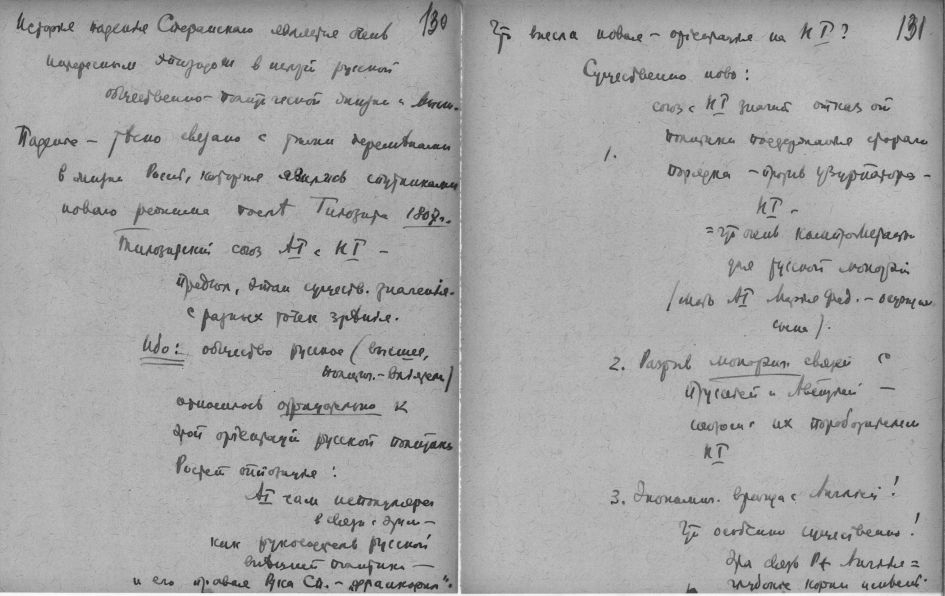 130
История падения Сперанского является очень
интересным эпизодом в целой русской
общественно-политической жизни и
Падение – тесно связано с теми переливами
в жизни России, которые явились спутниками
нового режима послѣ Тильзита 1807 г.
Тильзитский союз AI с НI –
предст. этап существ. значения
с разных точек зрения.
Ибо: общество русское (высшее,
политич. – )
относилось отрицательно к
этой орiентации русской политики
Растет оппозиция:
AI сам непопулярен
в связи с этим –
как руководитель русской
внешней политики –
и его правая рука Сп. – „франкофил".
131
Что внесла новая – орiентация на НI?
Существенно ново:
союз с НI значит отказ от
1. политики поддержания старого
порядка – против узурпатора –
НI –
= что очень компрометир.
для русской монархii
(мать AI Мария Фед. –
сына).
2. Разрыв монархич. связей с
Пруссией и Австрией –
с их поработителем
НI
3. Экономич. вражда с Англией!
Что особенно существенно!
Эта связь Р. с Англией =
глубокие корни имеет